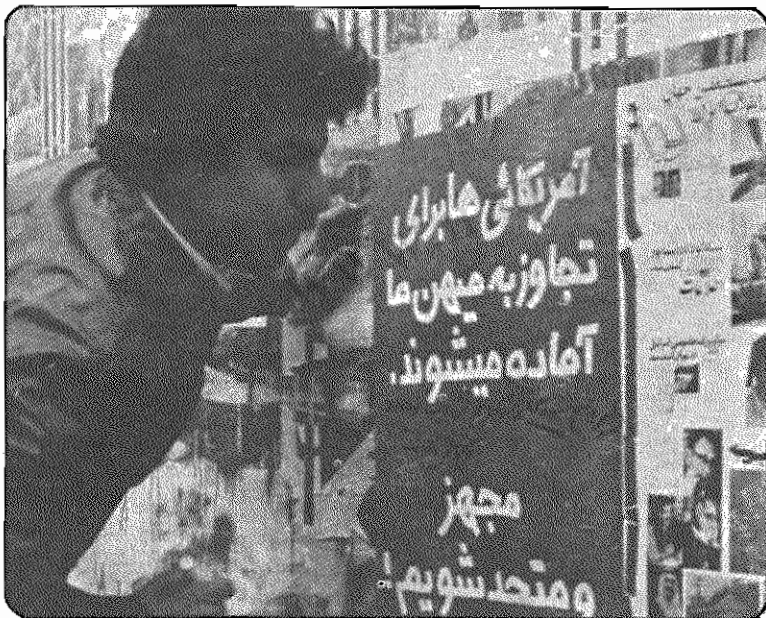 آمریکائی ها برای
تجاوز به میهن ما
آماده میشوند.
مجهز
و متحد شویم!